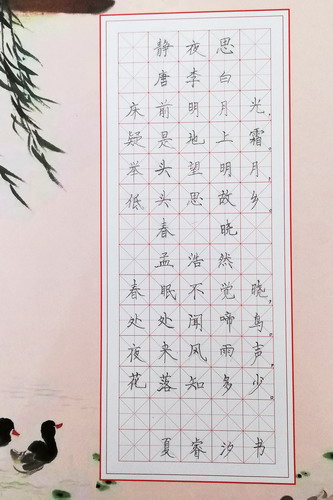 静夜思
唐李白
床前明月光，
疑是地上霜。
举头望明月，
低头思故乡。
春晓
孟浩然
春眠不觉晓，
处处闻啼鸟。
夜来风雨声，
花落知多少。
夏睿汐书